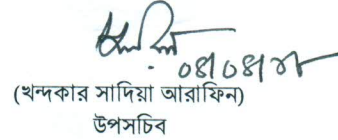 ০৪/০৪/২৪
(খন্দকার সাদিয়া আরাফিন)
উপসচিব